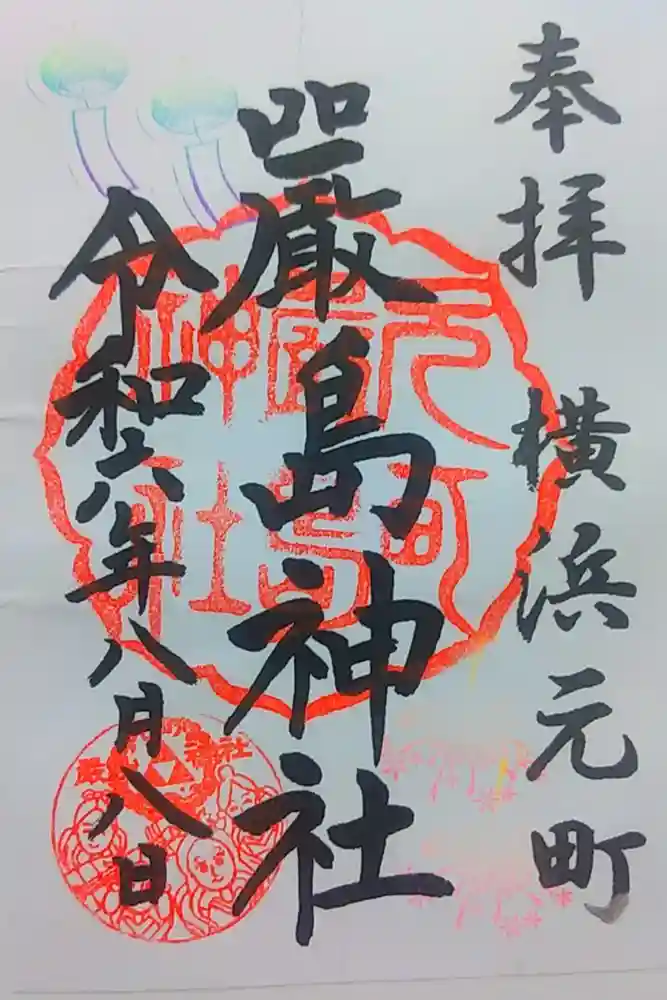 奉拝 横浜元町
嚴島神社
令和六年八月八日
元町
嚴島
神社